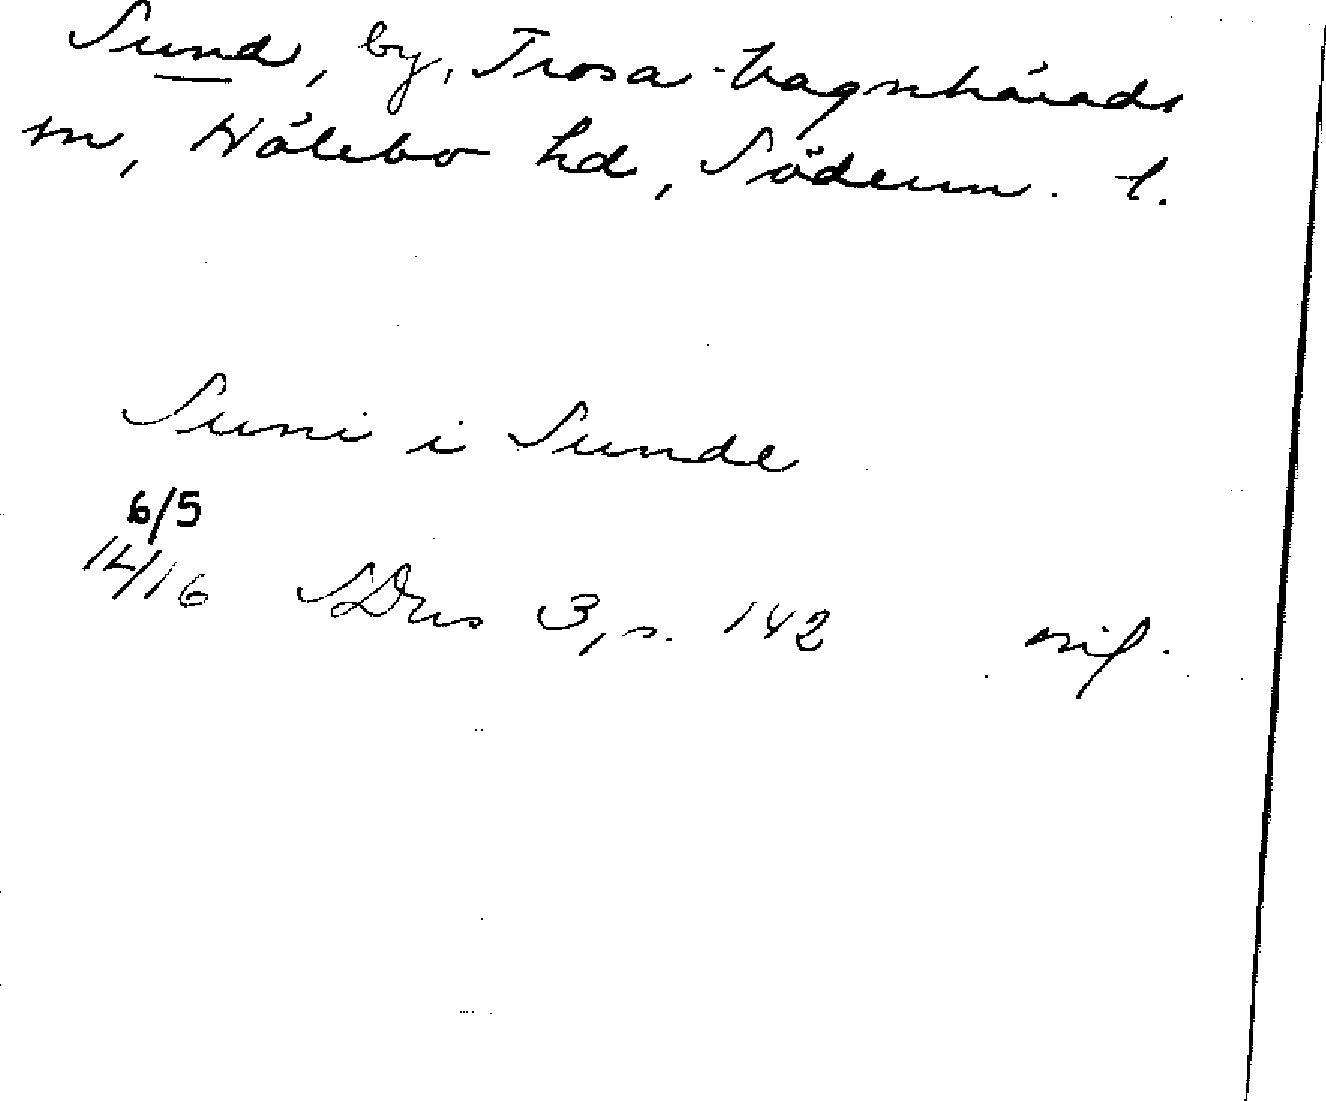 Sund, by, Trosa-Vagnhärads
sn, Hölebo hd, Söderm. l.
Suni i Sunde
6/5
14/16 SDns 3, s. 142 sigill.